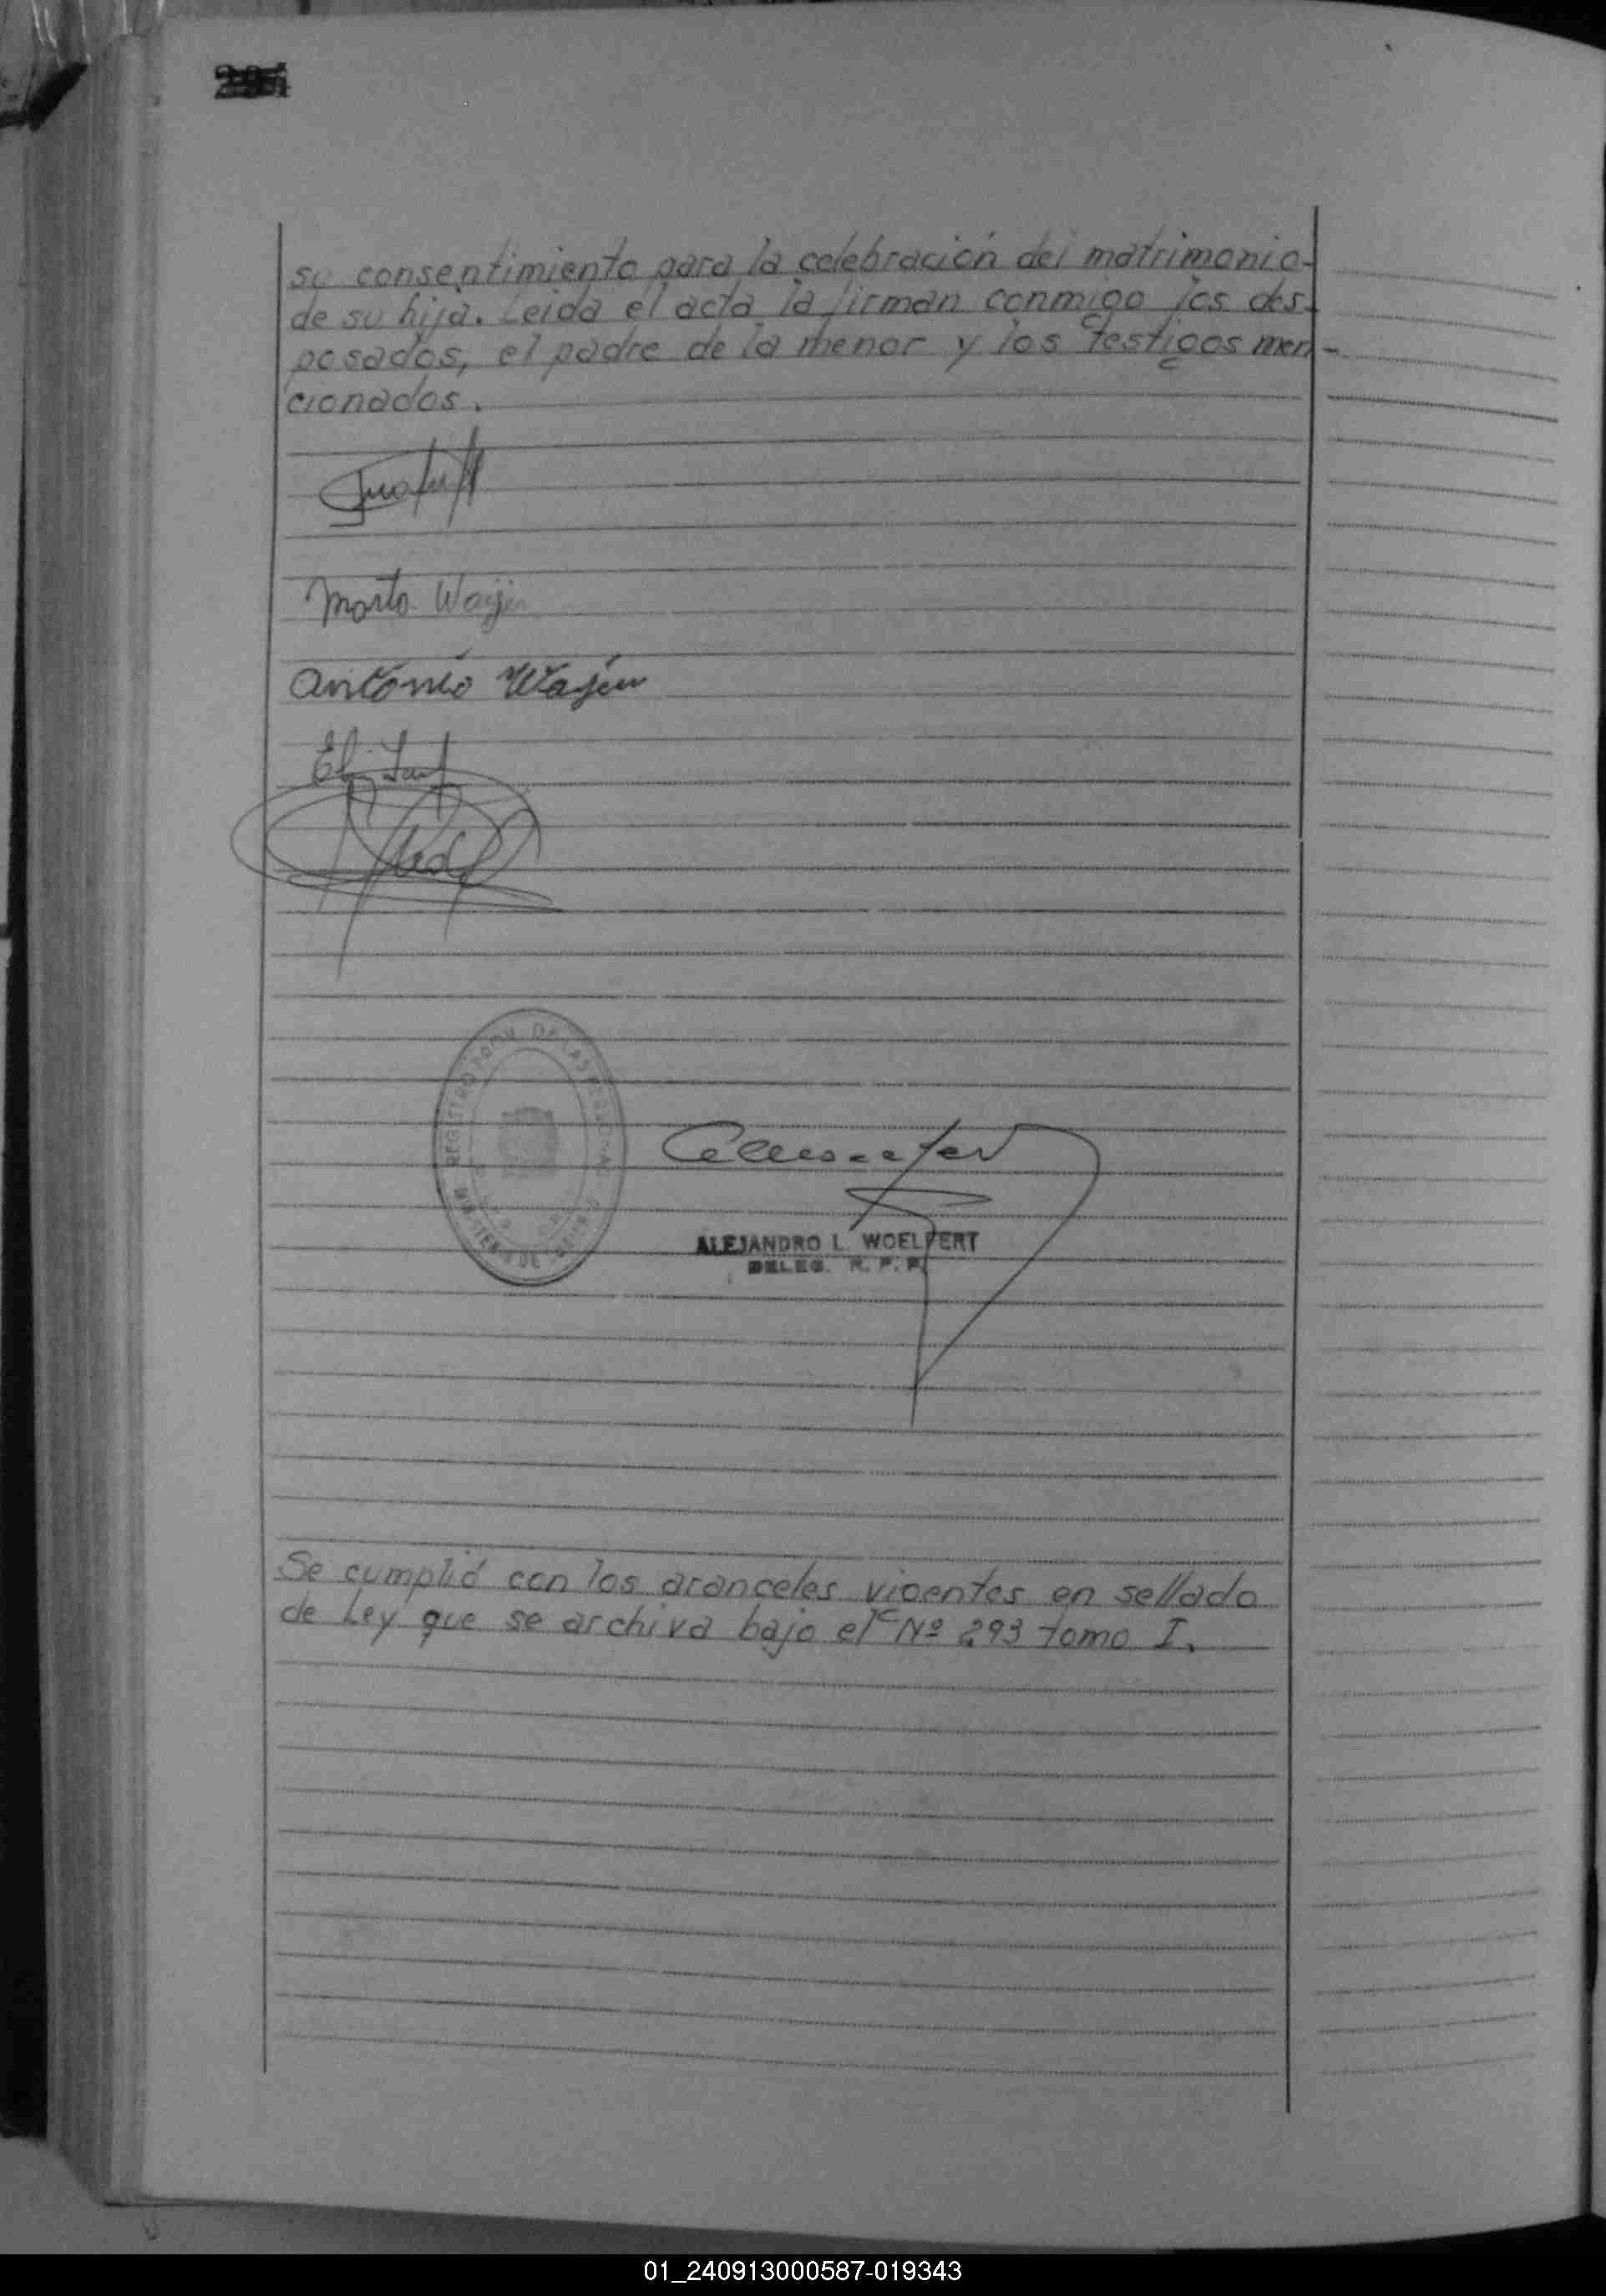 su consentimiento para la celebración del matrimonio-
de su hija. Leida el acta la firman conmigo los des-
posados, el padre de la menor y los testigos men-
cionados.
Marta Wagen
Antonio Wagen
REGISTRO PROV. DE LAS PERSONAS
MINISTERIO DE
ALEJANDRO L. WOELFERT
DELEG. R. P. P.
Se cumplió con los aranceles vigentes en sellado
de Ley que se archiva bajo el Nº 293 tomo I.
01_240913000587-019343